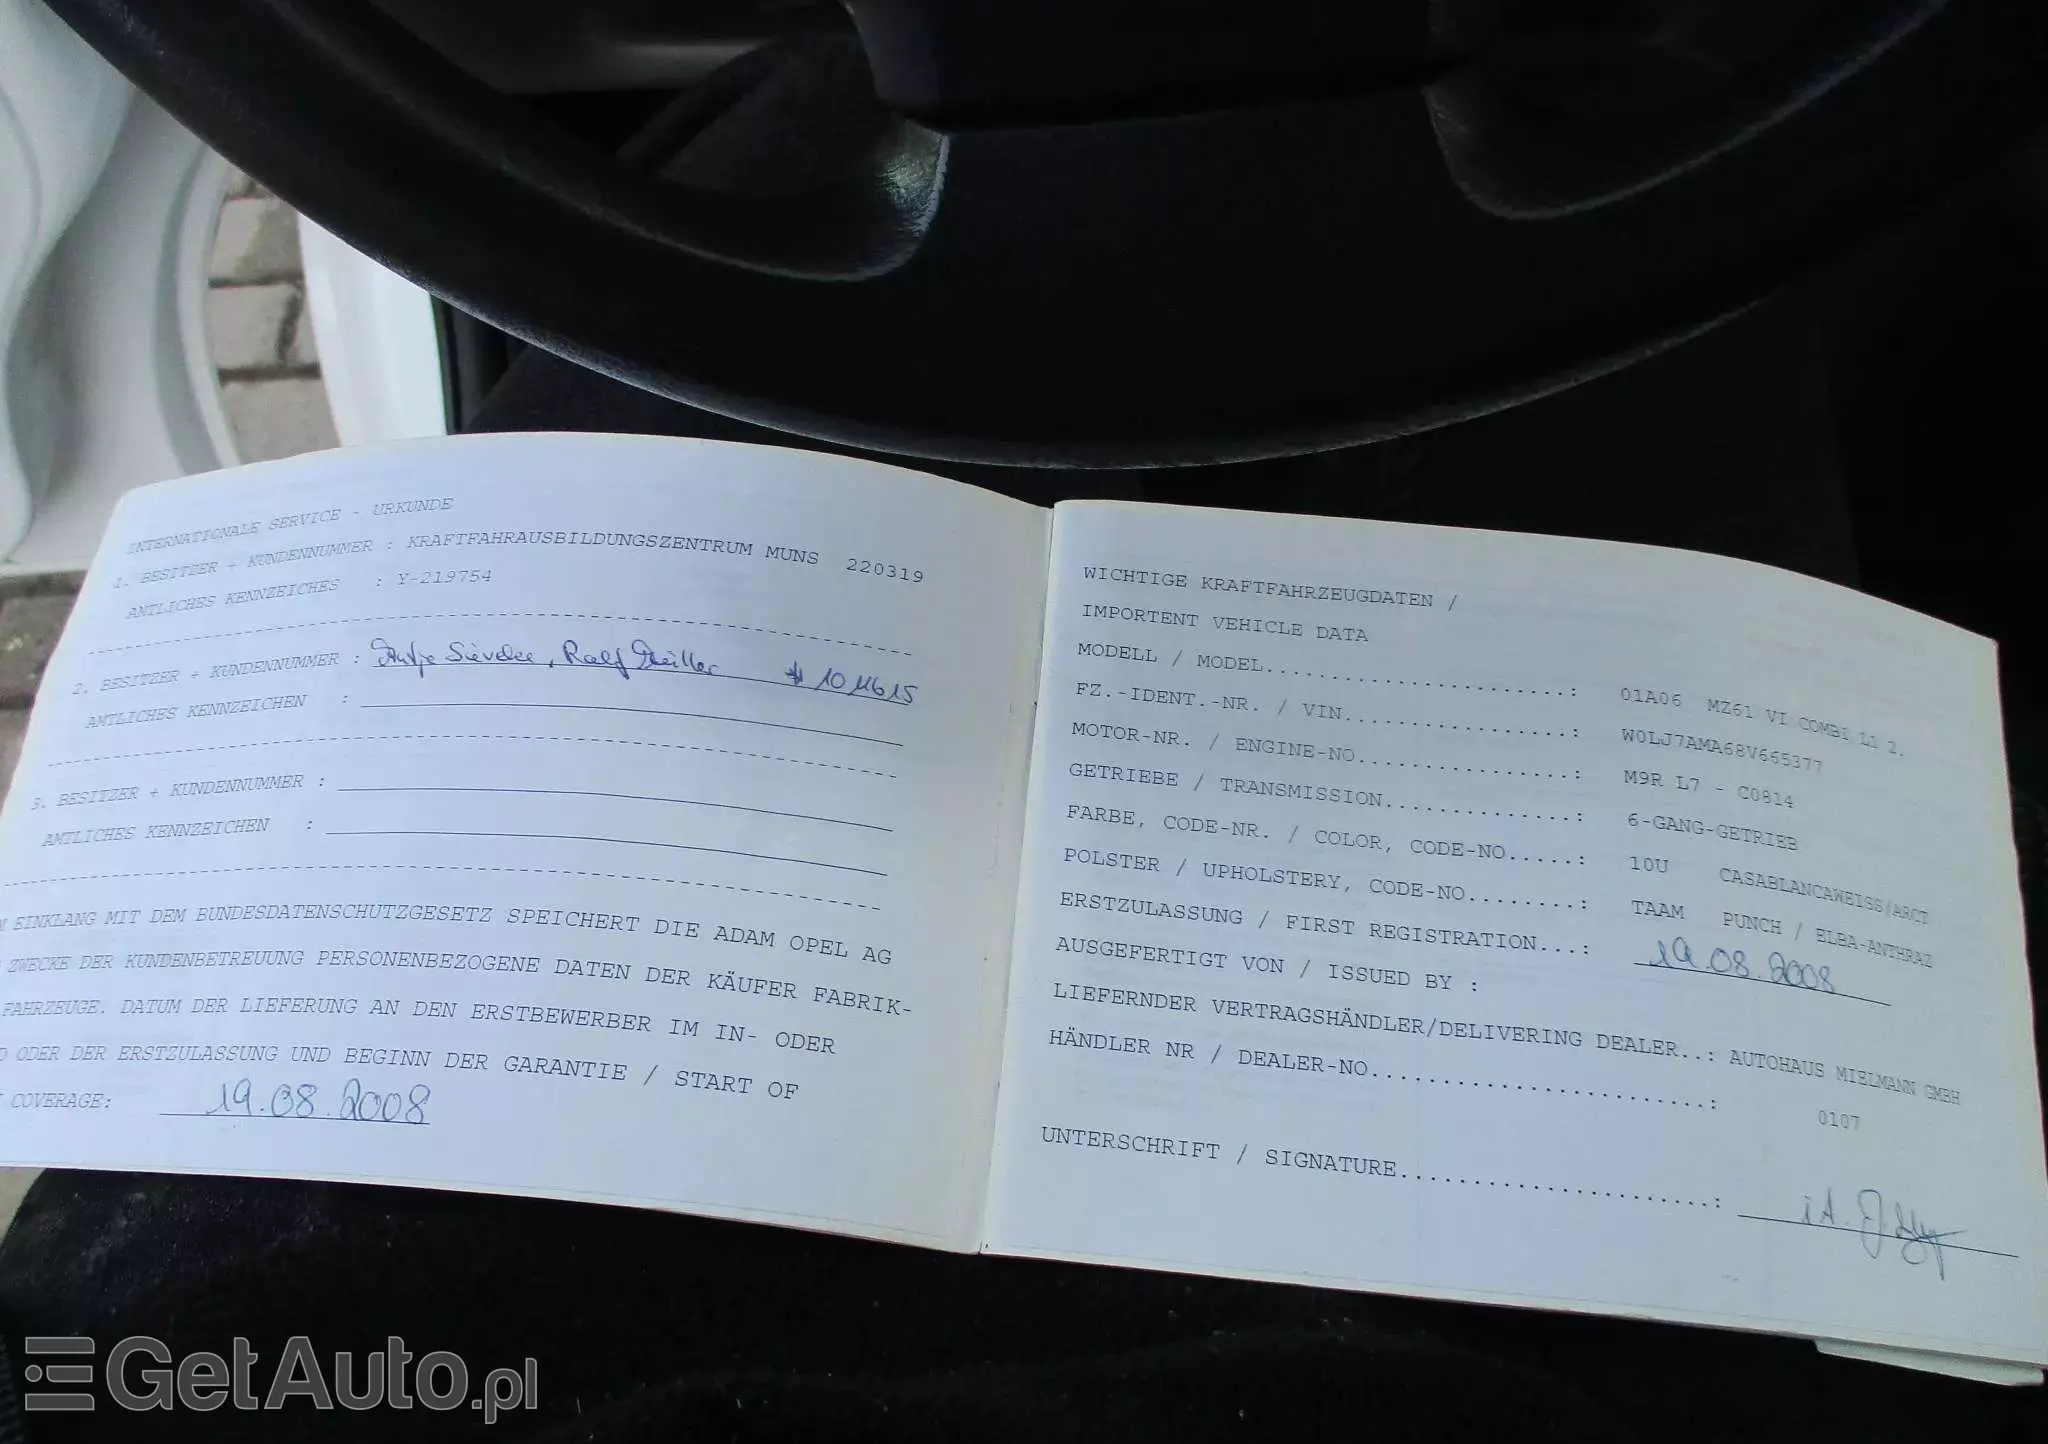 INTERNATIONALE SERVICE - URKUNDE
1. BESITZER + KUNDENNUMMER : KRAFTFAHRAUSBILDUNGSZENTRUM MUNS 220319
AMTLICHES KENNZEICHES : Y-219754
2. BESITZER + KUNDENNUMMER : Ralf Müller
AMTLICHES KENNZEICHEN :
3. BESITZER + KUNDENNUMMER :
AMTLICHES KENNZEICHEN :
EINKLANG MIT DEM BUNDESDATENSCHUTZGESETZ SPEICHERT DIE ADAM OPEL AG
ZWECKE DER KUNDENBETREUUNG PERSONENBEZOGENE DATEN DER KÄUFER FABRIK-
FAHRZEUGE. DATUM DER LIEFERUNG AN DEN ERSTBEWERBER IM IN- ODER
ODER DER ERSTZULASSUNG UND BEGINN DER GARANTIE / START OF
COVERAGE: 19.08.2008
WICHTIGE KRAFTFAHRZEUGDATEN /
IMPORTENT VEHICLE DATA
MODELL / MODEL.....................: 01A06 MZ61 VI COMBI L1 2.
FZ.-IDENT.-NR. / VIN................: W0LJ7AMA68V665377
MOTOR-NR. / ENGINE-NO...............: M9R L7 - C0814
GETRIEBE / TRANSMISSION.............: 6-GANG-GETRIEB
FARBE, CODE-NR. / COLOR, CODE-NO.....: 10U CASABLANCAWEISS/ARCT
POLSTER / UPHOLSTERY, CODE-NO........: TAAM PUNCH / ELBA-ANTHRAZ
ERSTZULASSUNG / FIRST REGISTRATION...: 19.08.2008
AUSGEFERTIGT VON / ISSUED BY :
LIEFERNDER VERTRAGSHÄNDLER/DELIVERING DEALER..: AUTOHAUS MIELMANN GMBH
HÄNDLER NR / DEALER-NO.......................: 0107
UNTERSCHRIFT / SIGNATURE.....................:
GetAuto.pl